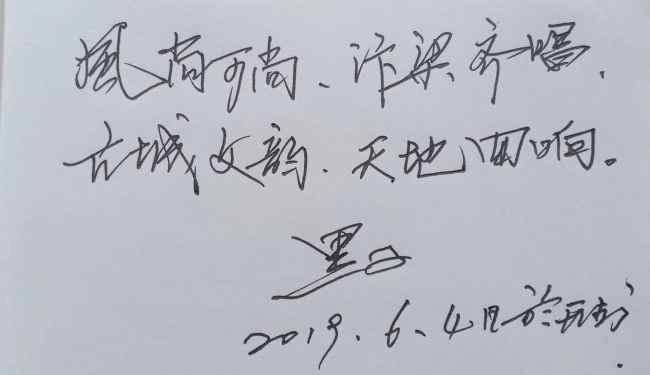 風尚可尚、汴梁齐唱，
古城文韵、天地回响。
2019.6.4日於开封